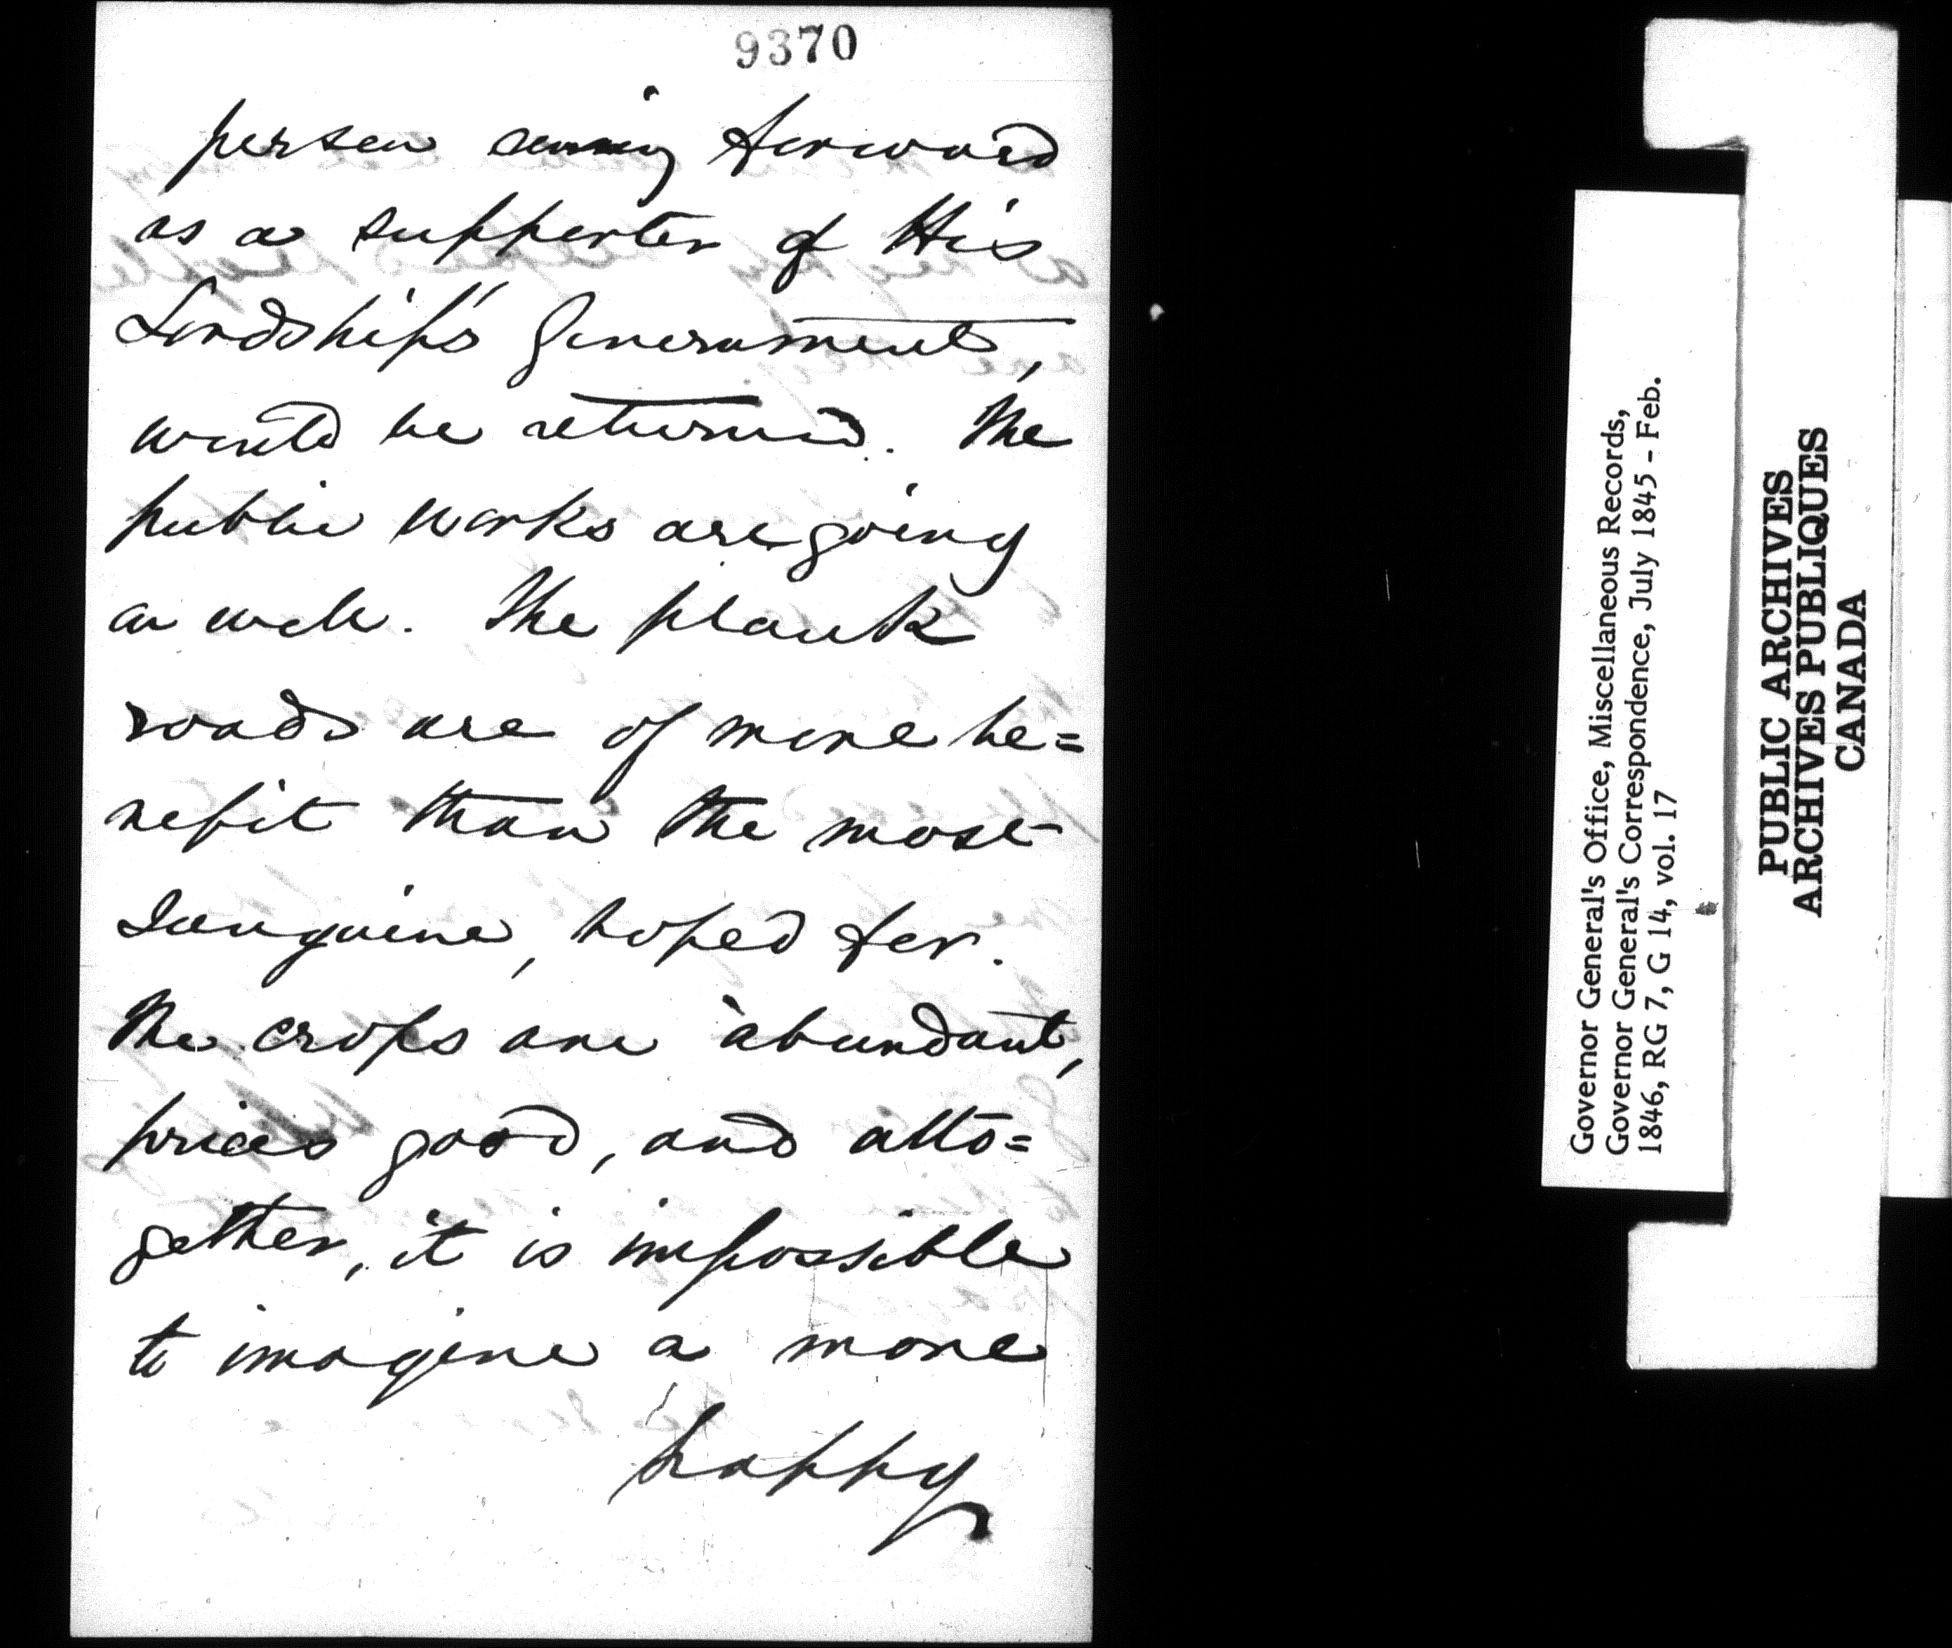 9370
person coming forward
as a supporter of His
Lordship's Government,
would be returned. The
public works are going
on well. The plank
roads are of more be=
nefit than the most
Sanguine, hoped for.
The crops are abundant,
prices good, and alto=
gether, it is impossible
to imagine a more
happy
Governor General's Office, Miscellaneous Records,
Governor General's Correspondence, July 1845 - Feb.
1846, RG 7, G 14, vol. 17
PUBLIC ARCHIVES
ARCHIVES PUBLIQUES
CANADA